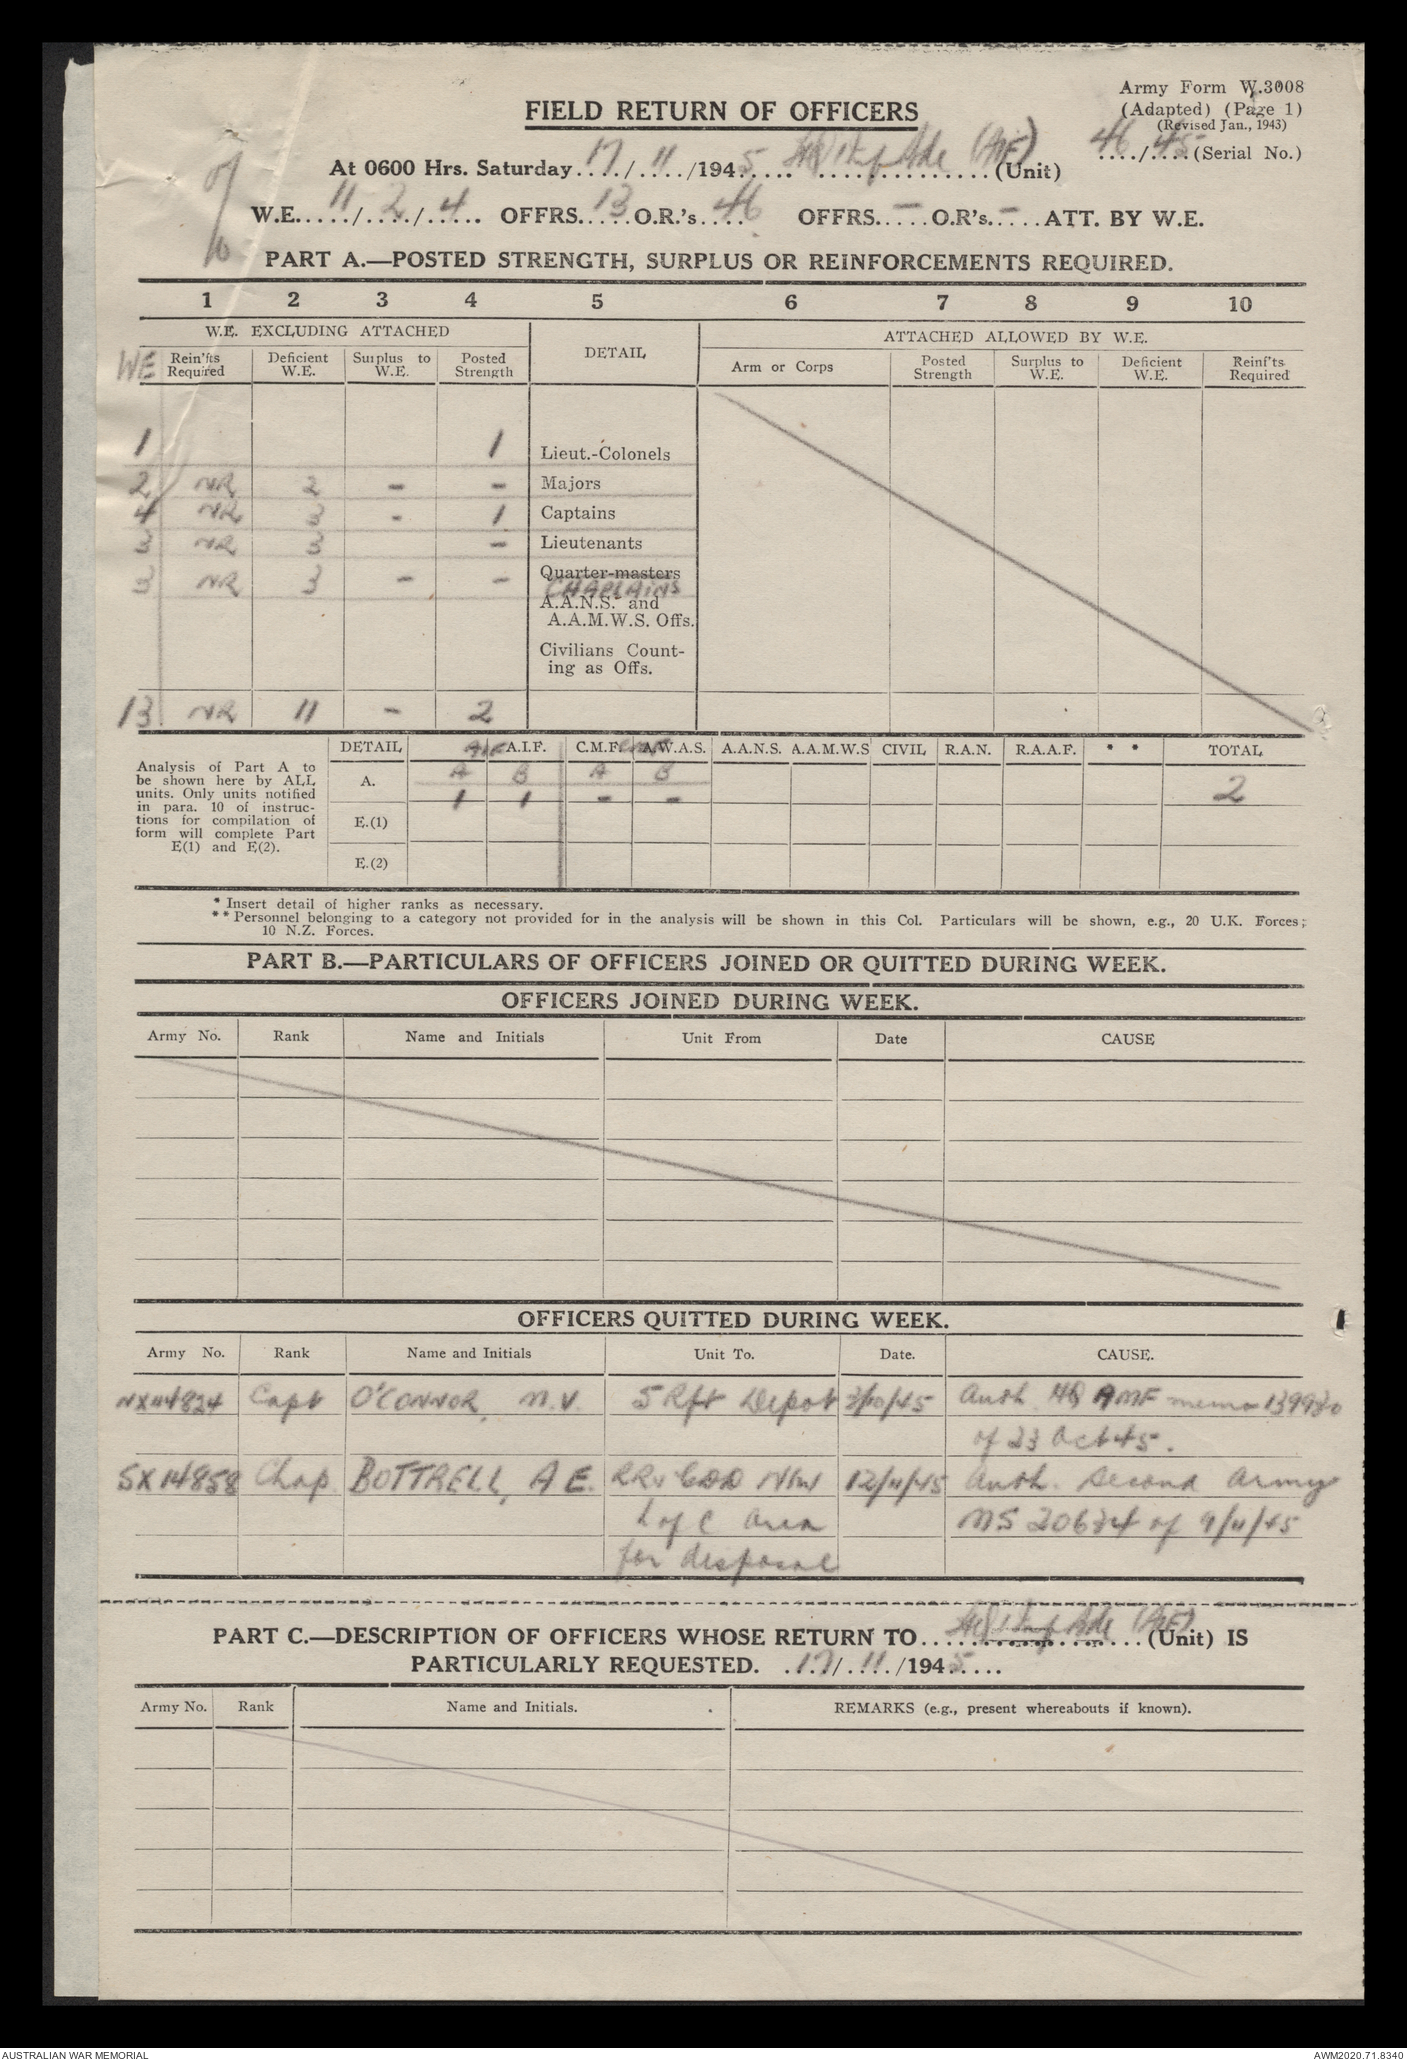 Army Form W.3008
(Adapted) (Page 1)
(Revised Jan., 1943)
FIELD RETURN OF OFFICERS
46 45
..../....(Serial No.)
At 0600 Hrs. Saturday 17/11/1945 HQ 1 Aust Inf Bde (AIF) (Unit)
W.E. 11/2/4 OFFRS. 13 O.R.'s 46 OFFRS. – O.R's. – ATT. BY W.E.
PART A.—POSTED STRENGTH, SURPLUS OR REINFORCEMENTS REQUIRED.
1 2 3 4 5 6 7 8 9 10
W.E. EXCLUDING ATTACHED DETAIL ATTACHED ALLOWED BY W.E.
WE Rein'fts Required Deficient W.E. Surplus to W.E. Posted Strength Arm or Corps Posted Strength Surplus to W.E. Deficient W.E. Reinf'ts Required
1 1 Lieut.-Colonels
2 NR 2 – – Majors
4 NR 3 – 1 Captains
3 NR 3 – Lieutenants
Quarter-masters
3 NR 3 – – CHAPLAINS
A.A.N.S. and
A.A.M.W.S. Offs.
Civilians Count-
ing as Offs.
13 NR 11 – 2
DETAIL AIF A.I.F. C.M.F. CMF A.W.A.S. A.A.N.S. A.A.M.W.S CIVIL R.A.N. R.A.A.F. * * TOTAL
Analysis of Part A to
be shown here by ALL
units. Only units notified
in para. 10 of instruc-
tions for compilation of
form will complete Part
E(1) and E(2).
A. A B A B
1 1 – – 2
E.(1)
E.(2)
* Insert detail of higher ranks as necessary.
** Personnel belonging to a category not provided for in the analysis will be shown in this Col. Particulars will be shown, e.g., 20 U.K. Forces;
10 N.Z. Forces.
PART B.—PARTICULARS OF OFFICERS JOINED OR QUITTED DURING WEEK.
OFFICERS JOINED DURING WEEK.
Army No. Rank Name and Initials Unit From Date CAUSE
OFFICERS QUITTED DURING WEEK.
Army No. Rank Name and Initials Unit To. Date. CAUSE.
NX114824 Capt O'CONNOR, N.V. 5 Rft Depot 3/10/45 Auth. HQ AMF memo 139930
of 23 Oct 45.
SX14858 Chap. BOTTRELL, A E. NSW 12/11/45 Auth. Second Army
L of C Area MS 20634 of 9/11/45
for disposal
PART C.—DESCRIPTION OF OFFICERS WHOSE RETURN TO HQ 1 Aust Inf Bde (AIF) (Unit) IS
PARTICULARLY REQUESTED. 17/11/1945
Army No. Rank Name and Initials. REMARKS (e.g., present whereabouts if known).
AUSTRALIAN WAR MEMORIAL AWM2020.71.8340